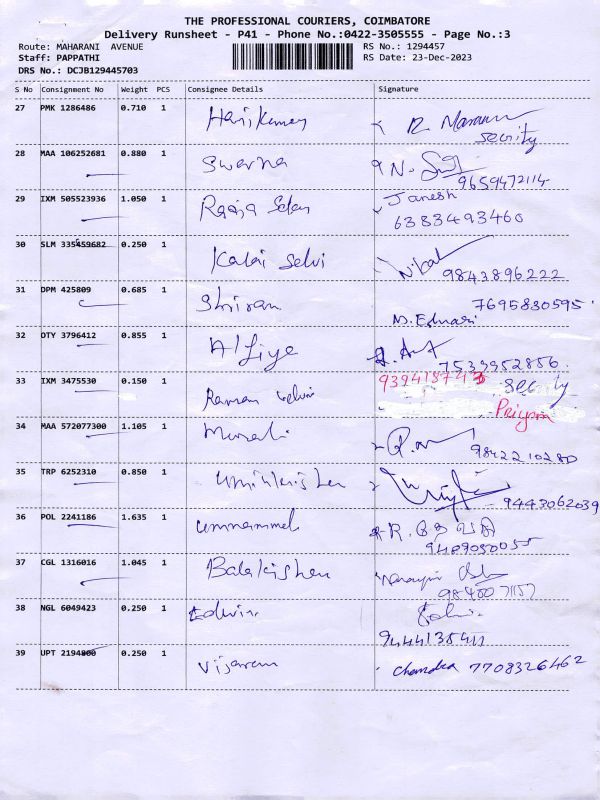 THE PROFESSIONAL COURIERS, COIMBATORE
Delivery Runsheet - P41 - Phone No.:0422-3505555 - Page No.:3
Route: MAHARANI AVENUE RS No.: 1294457
Staff: PAPPATHI RS Date: 23-Dec-2023
DRS No.: DCJB129445703
S No Consignment No Weight PCS Consignee Details Signature
27 PMK 1286486 0.710 1 Harikumar R
secrity
28 MAA 106252681 0.880 1 Swarna N.
9659472114
29 IXM 505523936 1.050 1 Raaja Janesh
6383493460
30 SLM 335459682 0.250 1 Kalai Selvi
9843896222
31 DPM 425809 0.685 1 Shiran 7695830595
32 OTY 3796412 0.855 1 Alfiya
7533952856
33 IXM 3475530 0.150 1 Raman Selvi secrity
Priya
34 MAA 572077300 1.105 1 Murali
9842210280
35 TRP 6252310 0.850 1
9443062039
36 POL 2241186 1.635 1 R.
37 CGL 1316016 1.045 1 Balakishan
38 NGL 6049423 0.250 1 Edwin
39 UPT 2194800 0.250 1 Vijayaram Chandra 7708326462